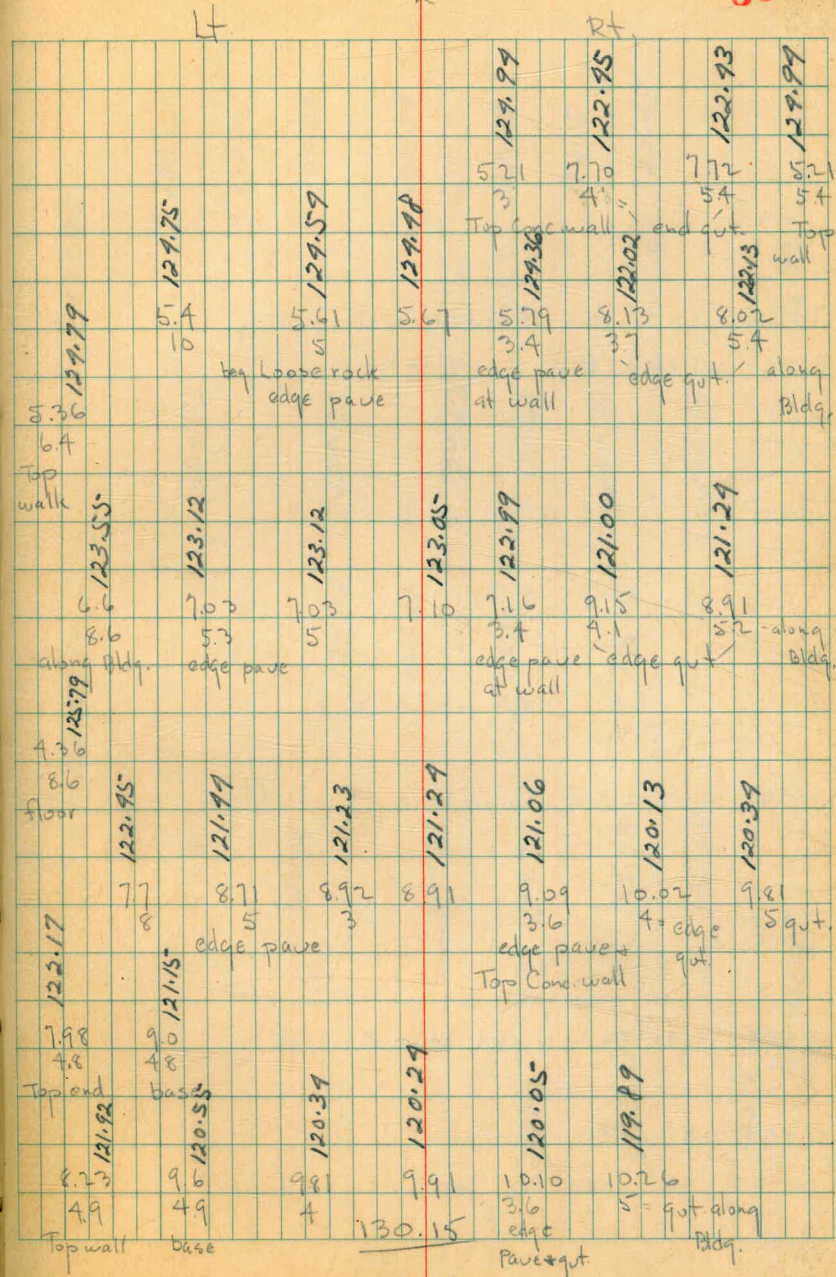 Lt Rt.
124.94 122.45 122.43 124.94
5.21 7.70 7.72 5.21
3 4 5.4 5.4
Top Conc. wall end gut. Top wall
124.75 124.54 124.48 124.36 122.02 122.13
5.4 5.61 5.67 5.79 8.13 8.02
10 5 3.4 3.7 5.4
beg Loose rock edge pave edge gut. along
edge pave at wall Bldg.
124.79
5.36
6.4
Top
walk
123.55 123.12 123.12 123.05 122.99 121.00 121.24
6.6 7.03 7.03 7.10 7.16 9.15 8.91
8.6 5.3 5 3.4 4.1 5.2 - along
along Bldg. edge pave edge pave edge gut Bldg.
at wall
125.79
4.36
8.6
floor
122.45 121.44 121.23 121.24 121.06 120.13 120.34
7.7 8.71 8.92 8.91 9.09 10.02 9.81
8 5 3 3.6 4 = edge 5 gut.
edge pave edge pave + gut.
Top Conc. wall
122.17 121.15
7.98 9.0
4.8 4.8
Top end base
121.92 120.55 120.34 120.24 120.05 119.89
8.23 9.6 9.81 9.91 10.10 10.26
4.9 4.9 4 3.6 5 = gut along
Top wall base 130.15 edge Bldg.
Pave + gut.